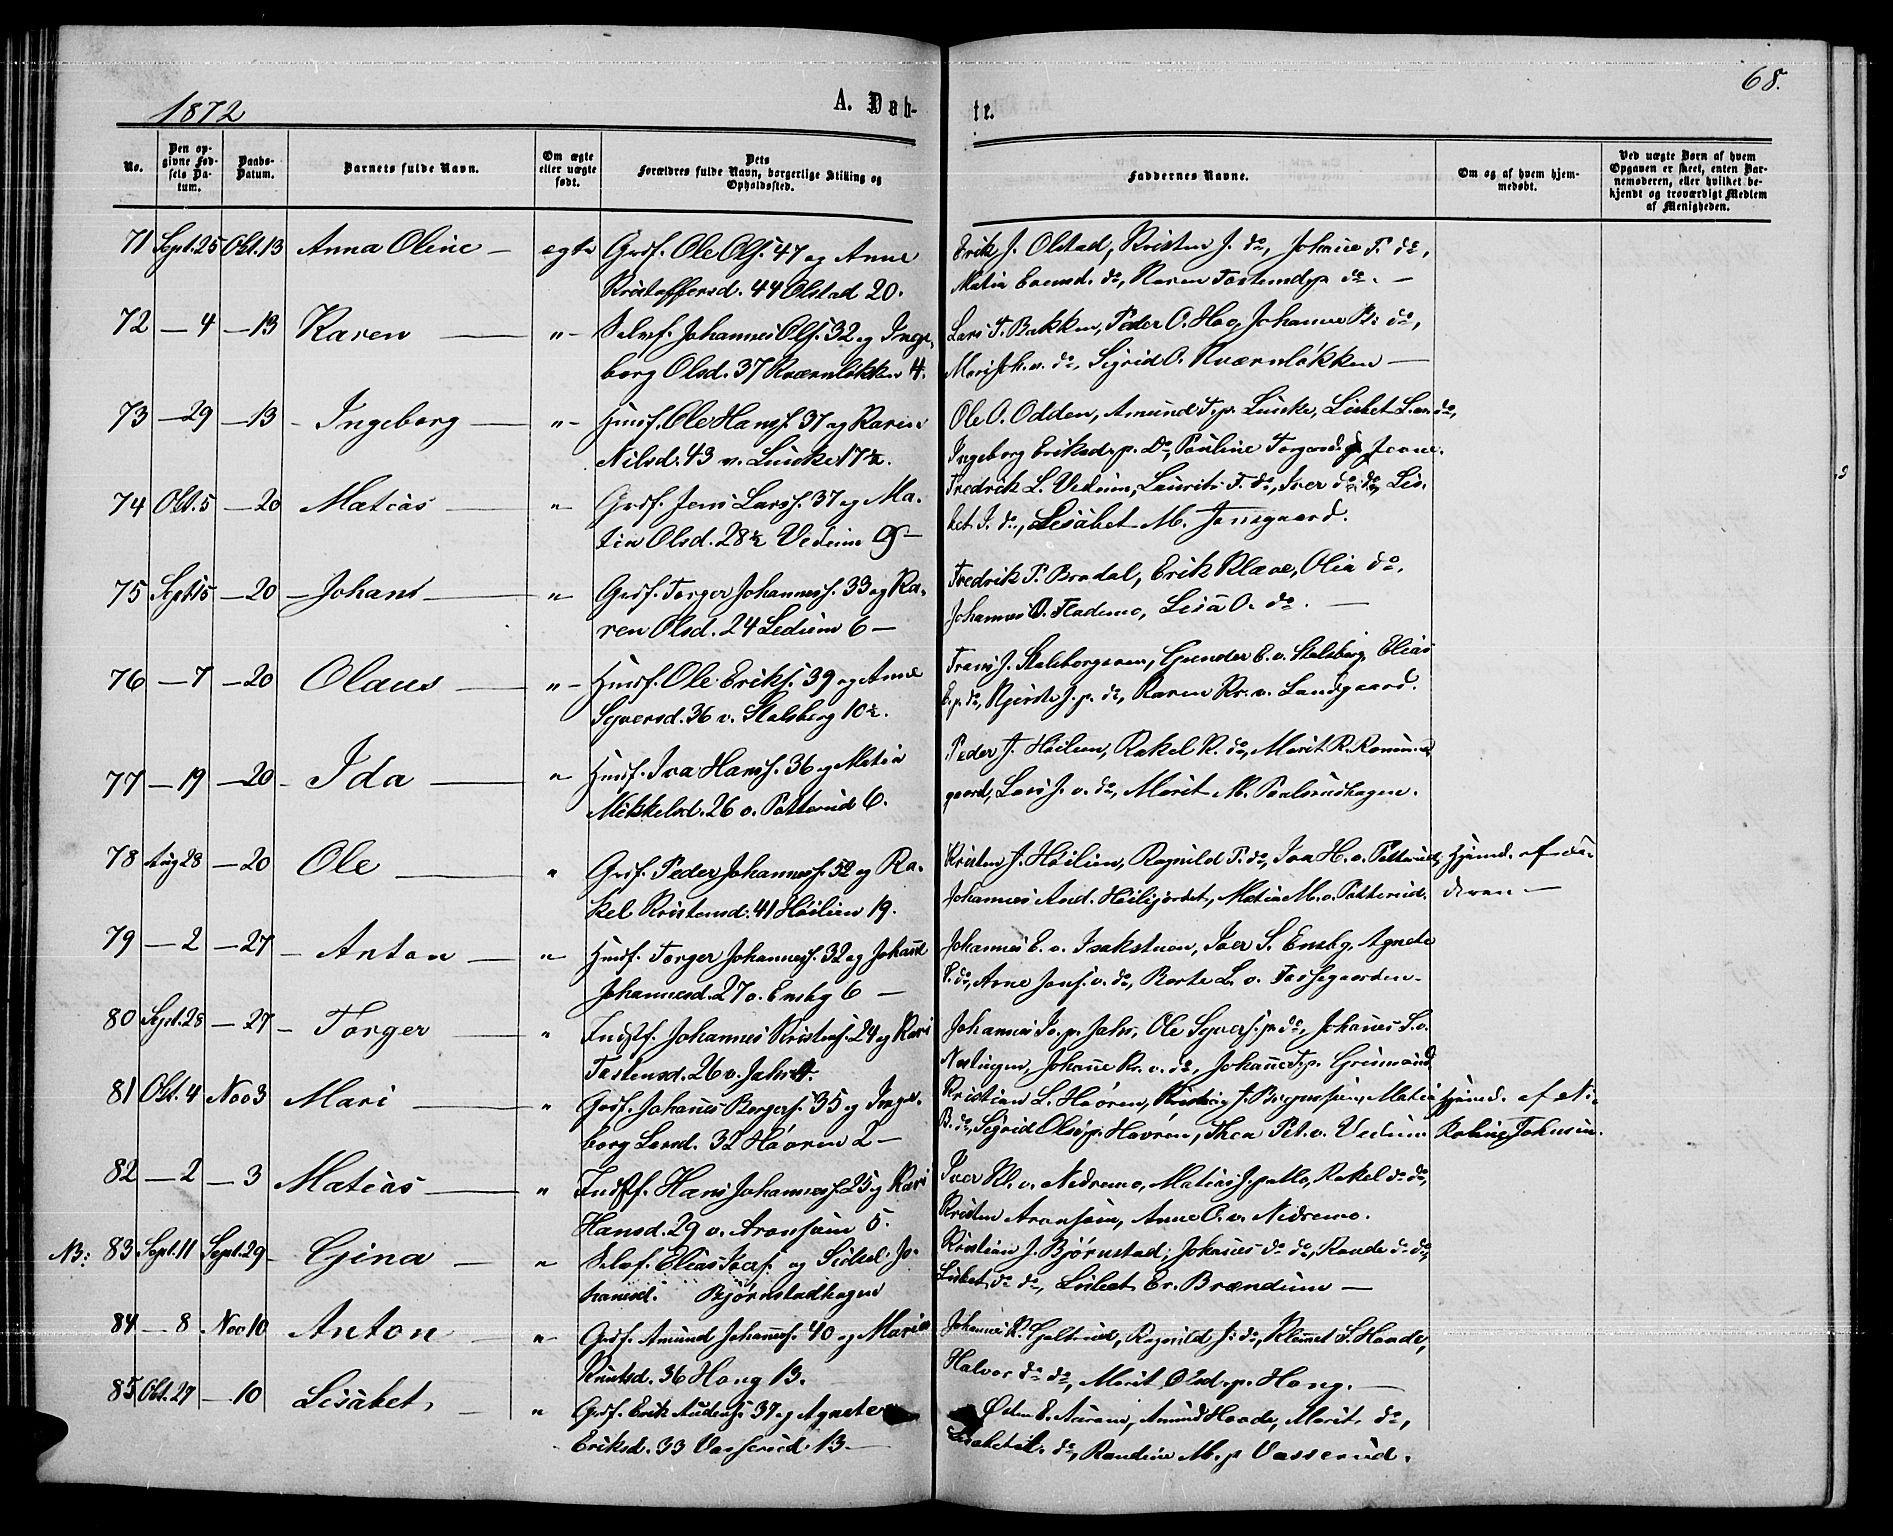 1872
A. Døb-
te.
68.
No.
Den op-
givne Fød-
sels Da-
tum.
Daabs-
Datum.
Barnets fulde Navn.
Om ægte
eller uægte
født.
Dets
Forældres fulde Navn, borgerlige Stilling og
Opholdssted.
Faddernes Navne.
Om og af hvem hjem-
medøbt.
Ved uægte Børn af hvem
Opgaven er skeet, enten Bar-
nemoderen, eller hvilket be-
kjendt og troværdigt Medlem
af Menigheden.
71 Sept. 25 Okt. 13 Anna Oline — ægte Grdf. Ole Olsf. 47 og Anne
Kristoffersd. 44 Olstad 20.
Erik J. Olstad, Kristen J. do, Johane P. do,
Matia Evensd. do, Karen Tostensd. p. do. —
72 — 4 — 13 Karen — " — Selvf. Johannes Olsf. 32 og Inge-
borg Olsd. 37 Kværnløkken 4.
Lars T. Bakken, Peder O. Hog, Johanne P. do,
Mari Joh. v. do, Sigrid O. Kværnløkken —
73 — 29 — 13 — Ingeborg — " — Husf. Ole Hansf. 37 og Karen
Nilsd. 43 v. Linske 17½.
Ole O. Odden, Amund T. p. Linske, Lisbet L. do,
Ingeborg Eriksd. p. do, Pauline Torgersd.
74 Okt. 5 — 20 Matias — " Grdf. Jens Larsf. 37 og Ma-
tia Olsd. 28½ Vedum 9 —
Fredrik L. Vedum, Laurits F. do, Iver do do, Lis-
bet I. do, Lisabet M. Jonsgaard.
75 Sept. 15 — 20 — Johans — " Grdf. Torger Johannesf. 33 og Ka-
ren Olsd. 24 Ledum 6 —
Fredrik P. Brodal, Erik Klæve, Olia do.
Johannes O. Flademo, Lisa O. do. —
76 — 7 — 20 Olaus — " — Husf. Ole Eriksf. 39 og Anne
Syversd. 36 v. Stalsberg 10½.
Frans J. Stalsbergsven, Gunder E. v. Stalsberg, Elias
E. p. do, Kjersti J. p. do, Karen Kr. v. Landgaard.
77 — 19 — 20 — Ida — " Husf. Iva Hansf. 36 og Matia
Mikkelsd. 26 v. Patterud 6.
Peder J. Høilien, Rakel K. do, Marit R. Ramms-
gaard, Lars J. v. do, Marit M. Paalsrudhagen.
78 Aug 28 — 20 Ole — " Grdf. Peder Johannesf. 52 og Ra-
kel Kristensd. 41 Høilien 19.
Kristen J. Høilien, Ragnild P. do, Iva H. v. Patterud,
Johannes And. Høiligjerdet, Matia M. v. Patterud.
Hjemd. af Fa-
deren —
79 — 2 — 27 — Anton — " Husf. Torger Johannesf. 32 og Johane
Johannesd. 27 v. Ensby 6 —
Johannes E. v. Isakstuen, Iver S. Ensby, Agnete
T. do, Arne Jonsf. v. do, Berte L. v. Fossegaarden.
80 Sept. 28 — 27 — Torger — " Indstf. Johannes Kristensf. 24 og Kari
Tostensd. 26 v. Jahr 4.
Johannes Jo. p. Jahr, Ole Syversf. p. do, Johanes S. v.
Nestingen, Johane Kr. v. do, Johane T. p. Grimsrud
81 Okt. 4 Nov 3 Mari — " Grdf. Johanes Borgersf. 35 og Inge-
borg Larsd. 32 Haaren 2 —
Kristian L. Haaren, J. Borgersen, Matia
B. do, Sigrid Olsd. p. Haaren, Thea Pet. v. Vedum
Hjemd. af Ni-
koline Johnsen.
82 — 2 — 3 Matias — " Indstf. Hans Johannesf. 25 og Kari
Hansd. 29 v. Aronsøien 5.
Iver Kl. v. Nedremo, Matias J. p. Mo, Rakel do do,
Kristen Aronsøien, Anne O. v. Nedremo.
NB: 83 Sept. 11 Sept. 29 — Gina — " Selvf. Elias Iversf. og Sidsel Jo-
hansd. Bjørnstadhagen
Kristian J. Bjørnstad, Johanes do do, Rande do do,
Lisbet do do, Lisbet Er. Brændum —
84 — 8 Nov 10 Anton — " Grdf. Amund Johannesf. 40 og Maria
Knutsd. 36 Haug 13.
Johannes K. Gjeltrud, Ragnild J. do, Klemet S. Haade,
Halvor do do, Marit Olsd. p. Haug. —
85 Okt. 27 — 10 Lisabet, — " Grdf. Erik Audensf. 37 og Agnete
Eriksd. 33 Vasserud 13 —
Øden E. Aaraen, Amund Haade, Marit do,
do, Randine M. p. Vasserud.